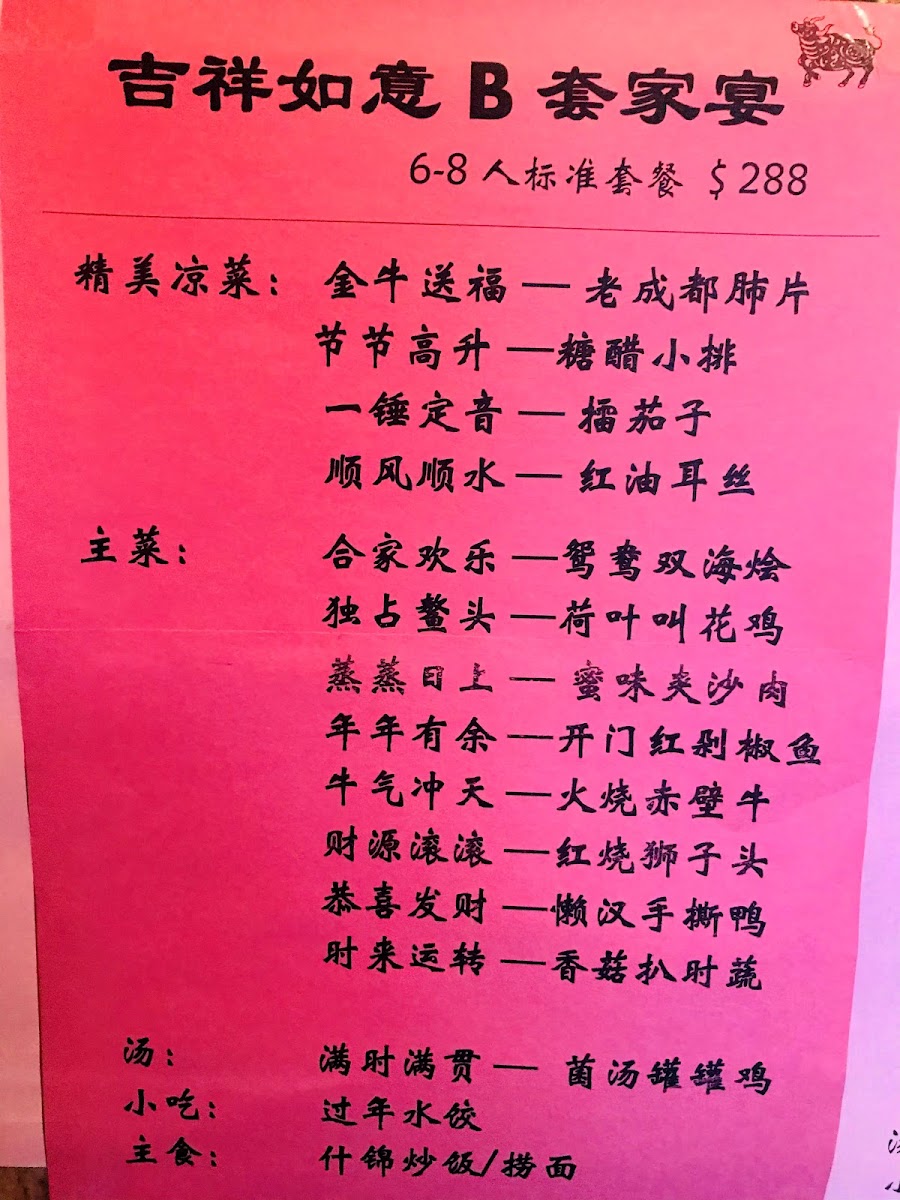 吉祥如意 B 套家宴
6-8 人标准套餐 $ 288
精美凉菜: 金牛送福 — 老成都肺片
节节高升 —糖醋小排
一锤定音 — 擂茄子
顺风顺水 — 红油耳丝
主菜: 合家欢乐 —鸳鸯双海烩
独占鳌头 —荷叶叫花鸡
蒸蒸日上 — 蜜味夹沙肉
年年有余 —开门红剁椒鱼
牛气冲天 —火烧赤壁牛
财源滚滚 —红烧狮子头
恭喜发财 —懒汉手撕鸭
时来运转 —香菇扒时蔬
汤: 满时满贯 — 菌汤罐罐鸡
小吃: 过年水饺
主食: 什锦炒饭/捞面